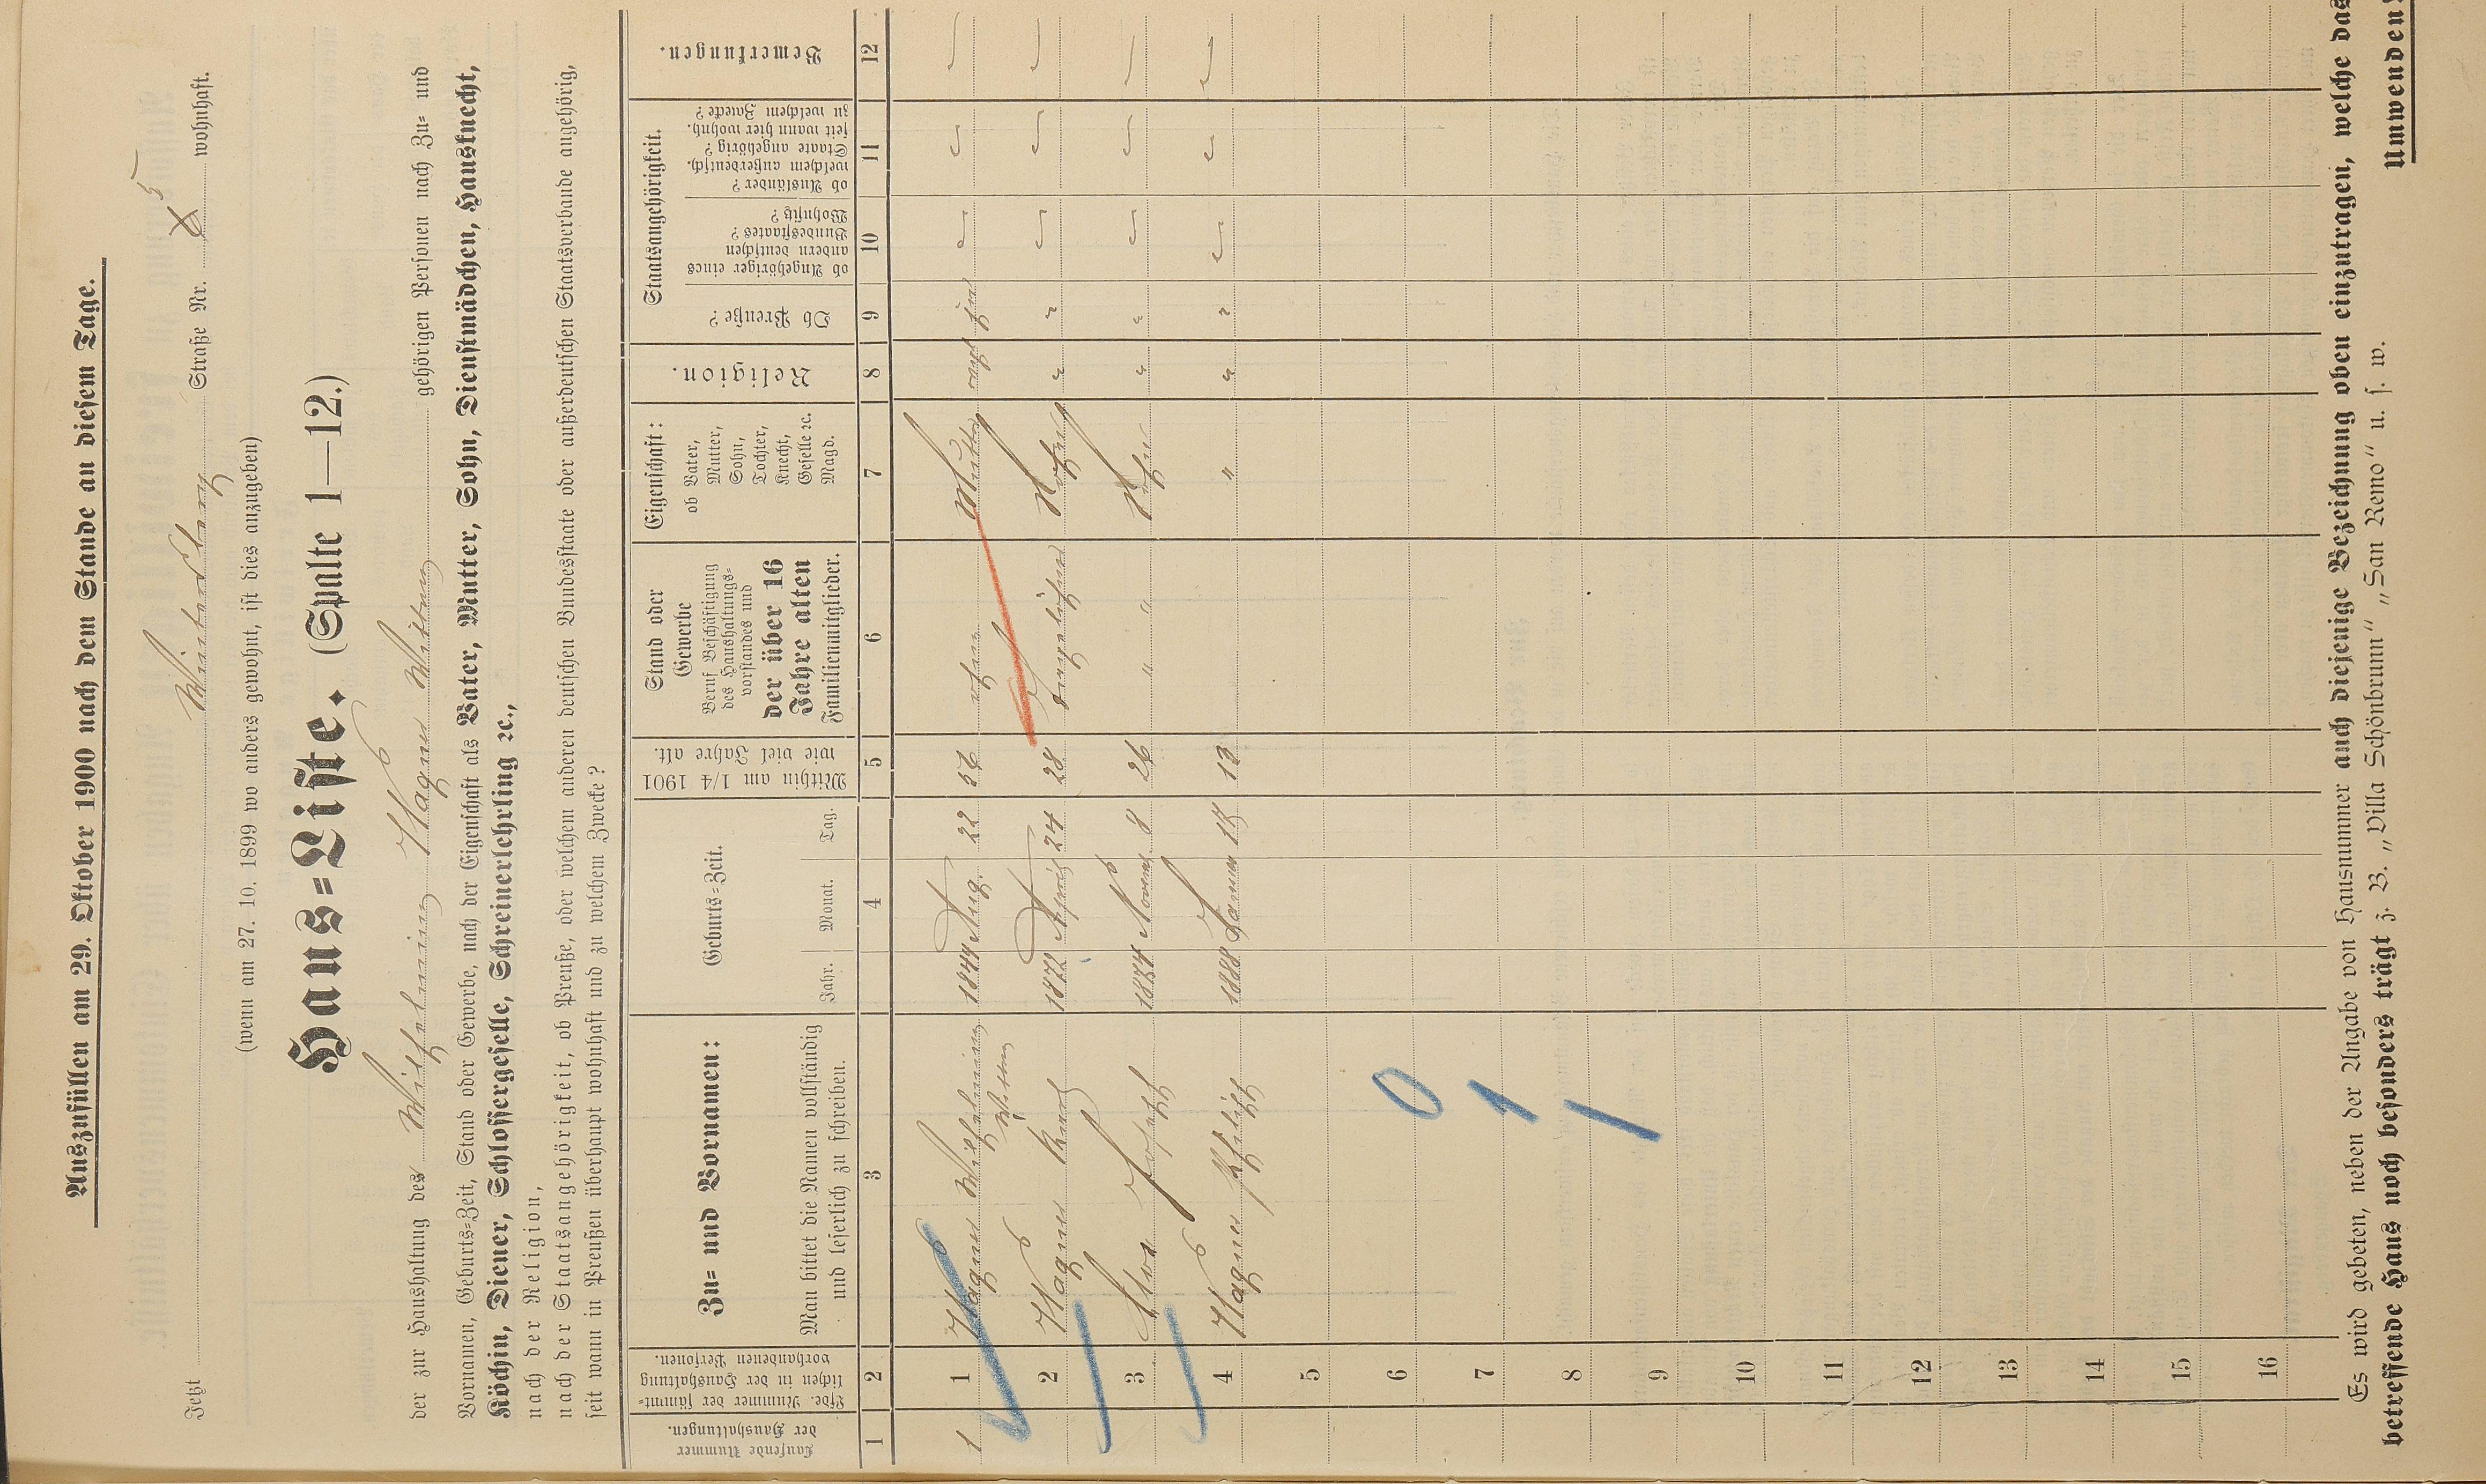 Auszufüllen am 29. Oktober 1900 nach dem Stande an diesem Tage.
Jetzt Straße Nr. 5 wohnhaft.
(wenn am 27. 10. 1899 wo anders gewohnt, ist dies anzugeben)
Haus=Liste. (Spalte 1—12.)
der zur Haushaltung des Wilhelmine Wagner Wittwe gehörigen Personen nach Zu= und
Vornamen, Geburts=Zeit, Stand oder Gewerbe, nach der Eigenschaft als Vater, Mutter, Sohn, Dienstmädchen, Hausknecht,
Köchin, Diener, Schlossergeselle, Schreinerlehrling ꝛc.,
nach der Religion,
nach der Staatsangehörigkeit, ob Preuße, oder welchem anderen deutschen Bundesstaate oder außerdeutschen Staatsverbande angehörig,
seit wann in Preußen überhaupt wohnhaft und zu welchem Zwecke?
Laufende Nummer der Haushaltungen.
Lfde. Nummer der sämmt=lichen in der Haushaltung vorhandenen Personen.
Zu= und Vornamen:
Man bittet die Namen vollständig und leserlich zu schreiben.
Geburts=Zeit.
Jahr. Monat. Tag.
Mithin am 1/4 1901 wie viel Jahre alt.
Stand oder Gewerbe
Beruf Beschäftigung des Haushaltungs-vorstandes und
der über 16 Jahre alten Familienmitglieder.
Eigenschaft:
ob Vater, Mutter, Sohn, Tochter, Knecht, Geselle ꝛc. Magd.
Religion.
Staatsangehörigkeit.
Ob Preuße?
ob Angehöriger eines andern deutschen Bundesstaates? Wohnsitz?
ob Ausländer? welchem außerdeutsch. Staate angehörig? seit wann hier wohnh. zu welchem Zwecke?
Bemerkungen.
1 2 3 4 5 6 7 8 9 10 11 12
1 1 Wagner Wilhelmine Wittwe 1844 Aug. 22 56 ohne Mutter evgl
2 Wagner Karl 1872 April 24 28 Tagelöhner " "
3 Joseph 1874 Novemb 8 26 " " Sohn " "
4 Wagner Philipp 1888 Januar 13 13 " " "
5
6
7
8
9
10
11
12
13
14
15
16
0
1
Es wird gebeten, neben der Angabe von Hausnummer auch diejenige Bezeichnung oben einzutragen, welche das
betreffende Haus noch besonders trägt z. B. „Villa Schönbrunn" „San Remo" u. s. w.
Umwenden!